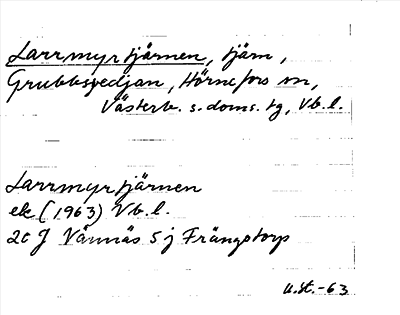 Larrmyrtjärnen, tjärn,
Grubbsvedjan, Hörnefors sn,
Västerb. s. doms. tg, Vb. l.
Larrmyrtjärnen
ek (1963) Vb. l.
20 J Vännäs 5 j Frängstorp
u.st.-63